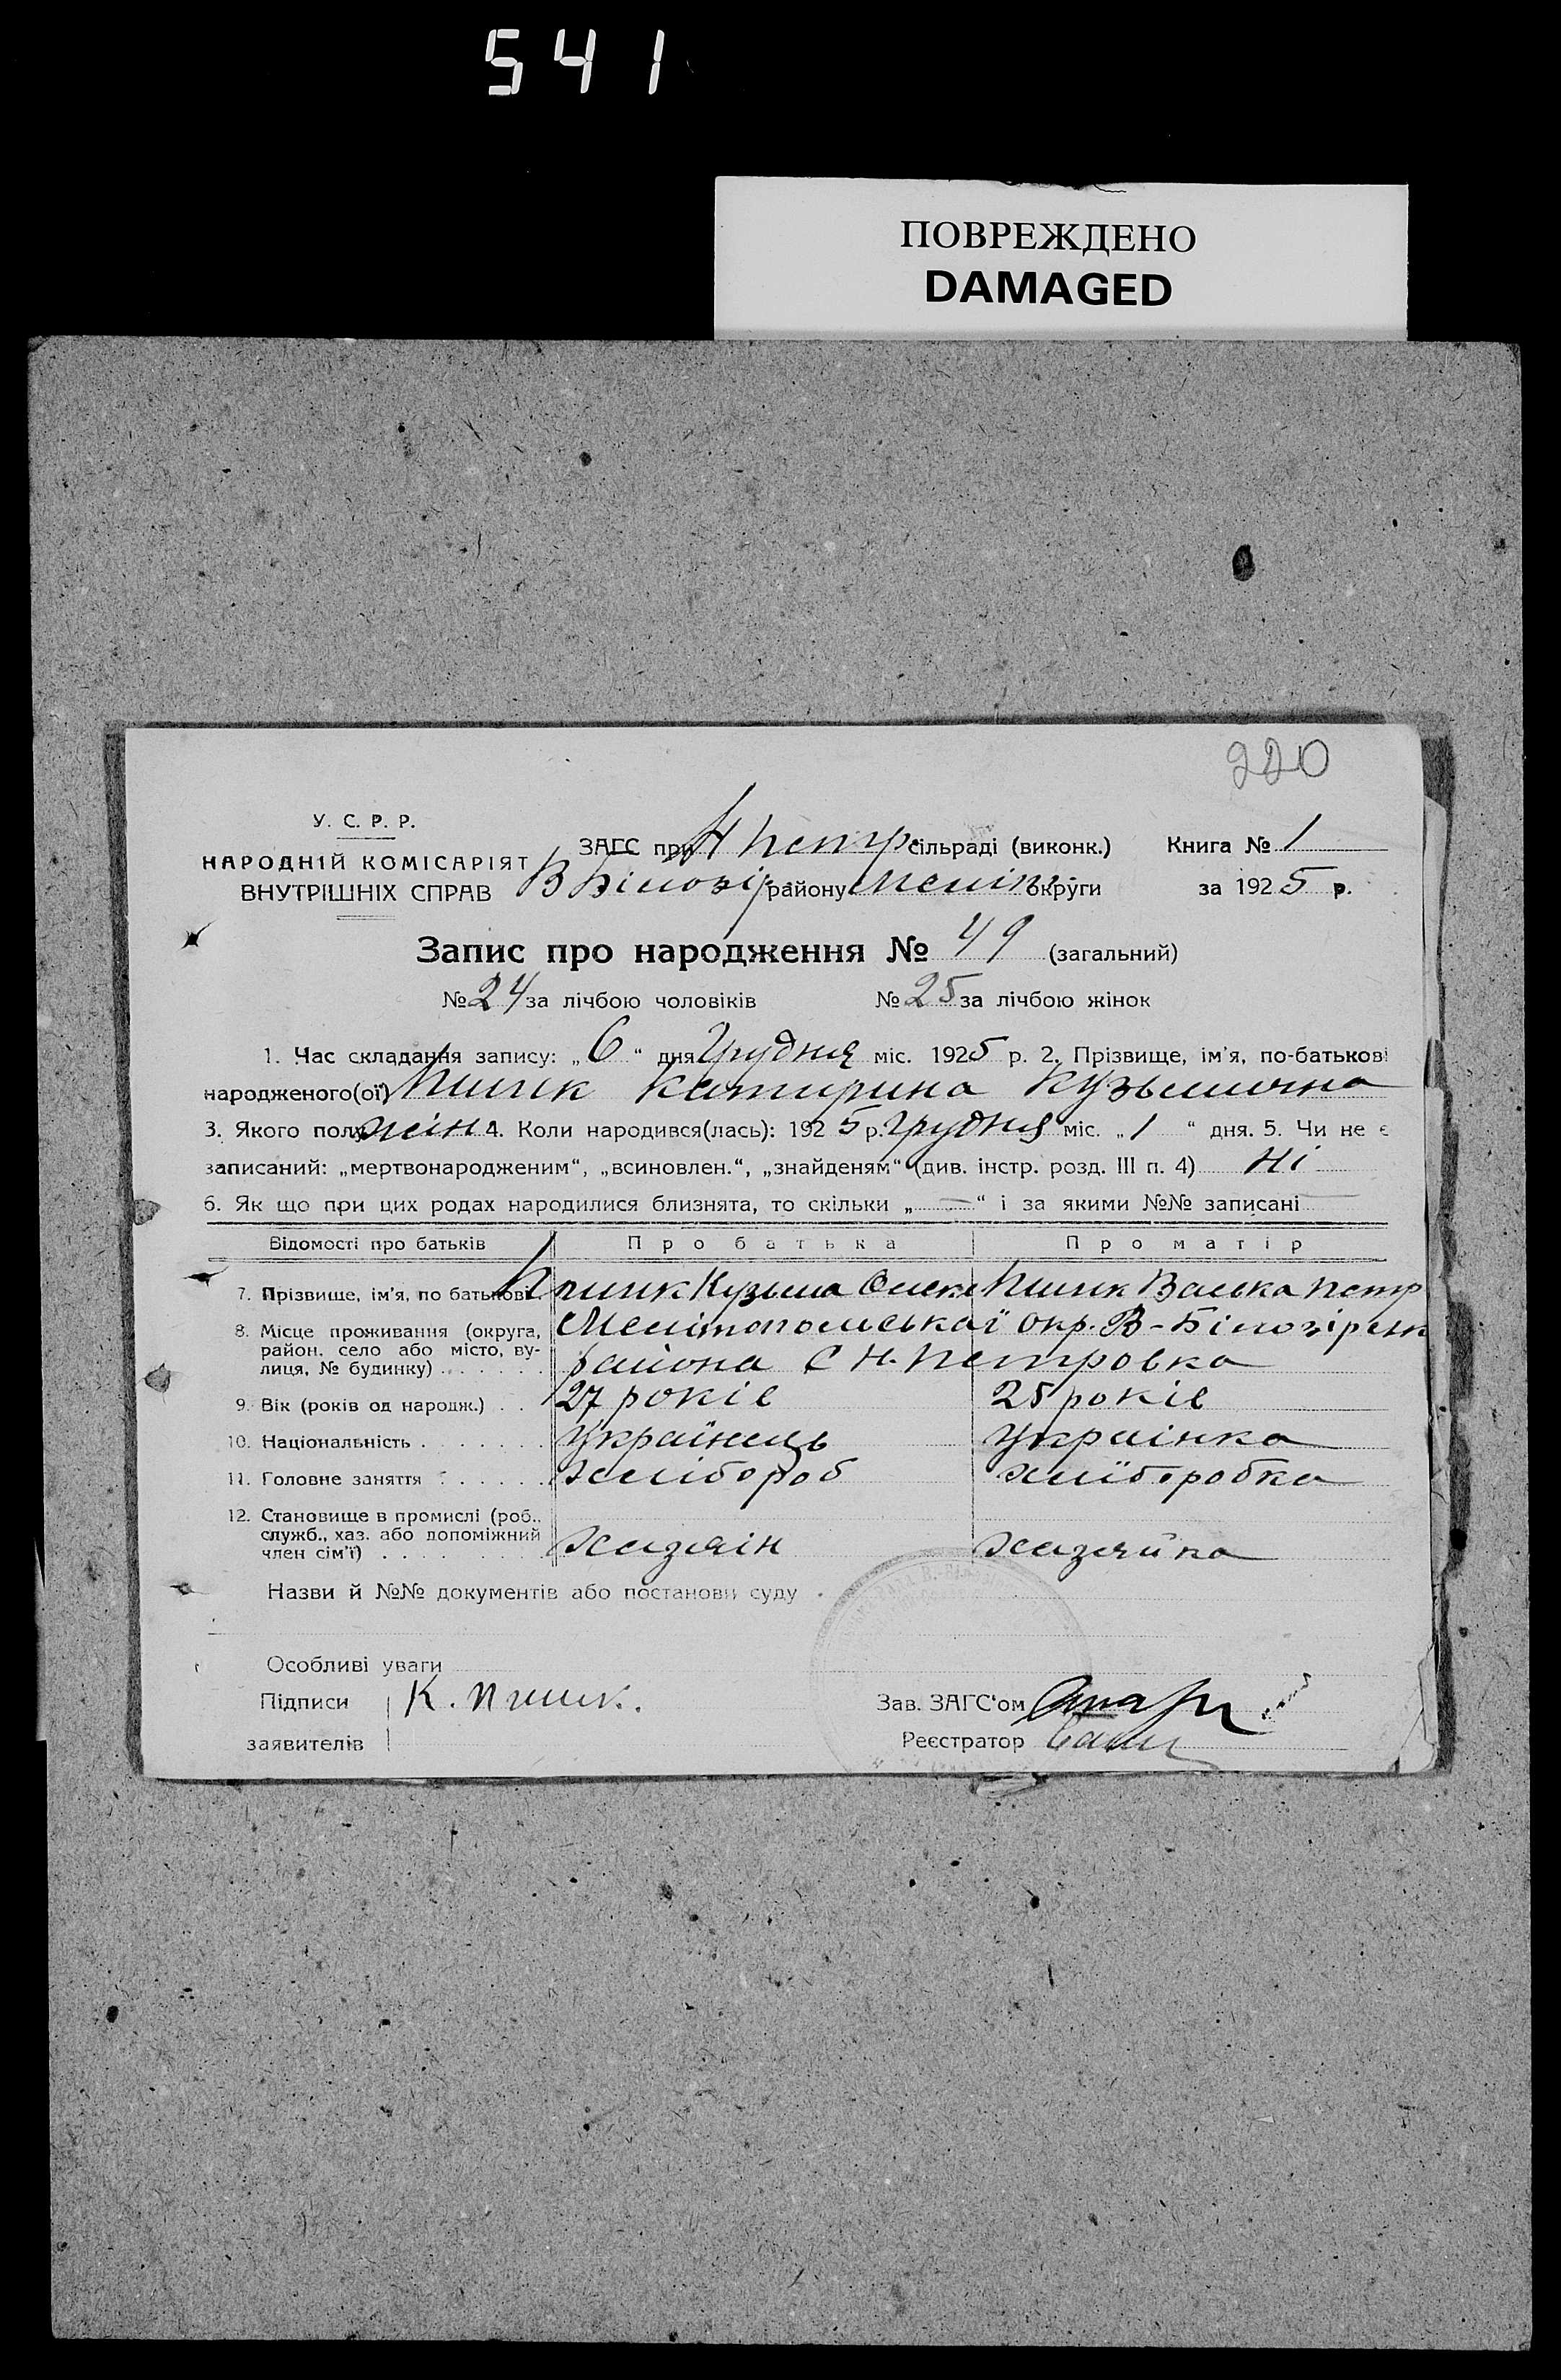 541
ПОВРЕЖДЕНО
DAMAGED
220
У. С. Р. Р.
НАРОДНІЙ КОМІСАРІЯТ
ВНУТРІШНІХ СПРАВ
ЗАГС при Н Петр. сільраді (виконк.) Книга № 1
В Білозір району Меліт. округи за 1925 р.
Запис про народження № 49 (загальний)
№ 24 за лічбою чоловіків № 25 за лічбою жінок
1. Час складання запису: „6“ дня Грудня міс. 1925 р. 2. Прізвище, ім'я, по-батькові
народженого(ої) Катирина Кузьмична
3. Якого полу жін 4. Коли народився(лась): 1925 р. Грудня міс. „1“ дня. 5. Чи не є
записаний: „мертвонародженим“, „всиновлен.“, „знайденям“ (див. інстр. розд. III п. 4) Ні
6. Як що при цих родах народилися близнята, то скільки „—“ і за якими №№ записані —
Відомості про батьків Про батька Про матір
7. Прізвище, ім'я, по батькові. Кузьма Олекс Васька Петр
8. Місце проживання (округа, район, село або місто, вулиця, № будинку) Мелітопольської окр. В-Білозірськ
района с Н. Петровка
9. Вік (років од народж.) 27 років 25 років
10. Національність Українець Украінка
11. Головне заняття хлібороб хліборобка
12. Становище в промислі (роб., служб., хаз. або допоміжний член сім'ї) хазяін хазяйка
Назви й №№ документів або постанови суду
Особливі уваги
Підписи К.
заявителів
Зав. ЗАГС'ом
Реєстратор